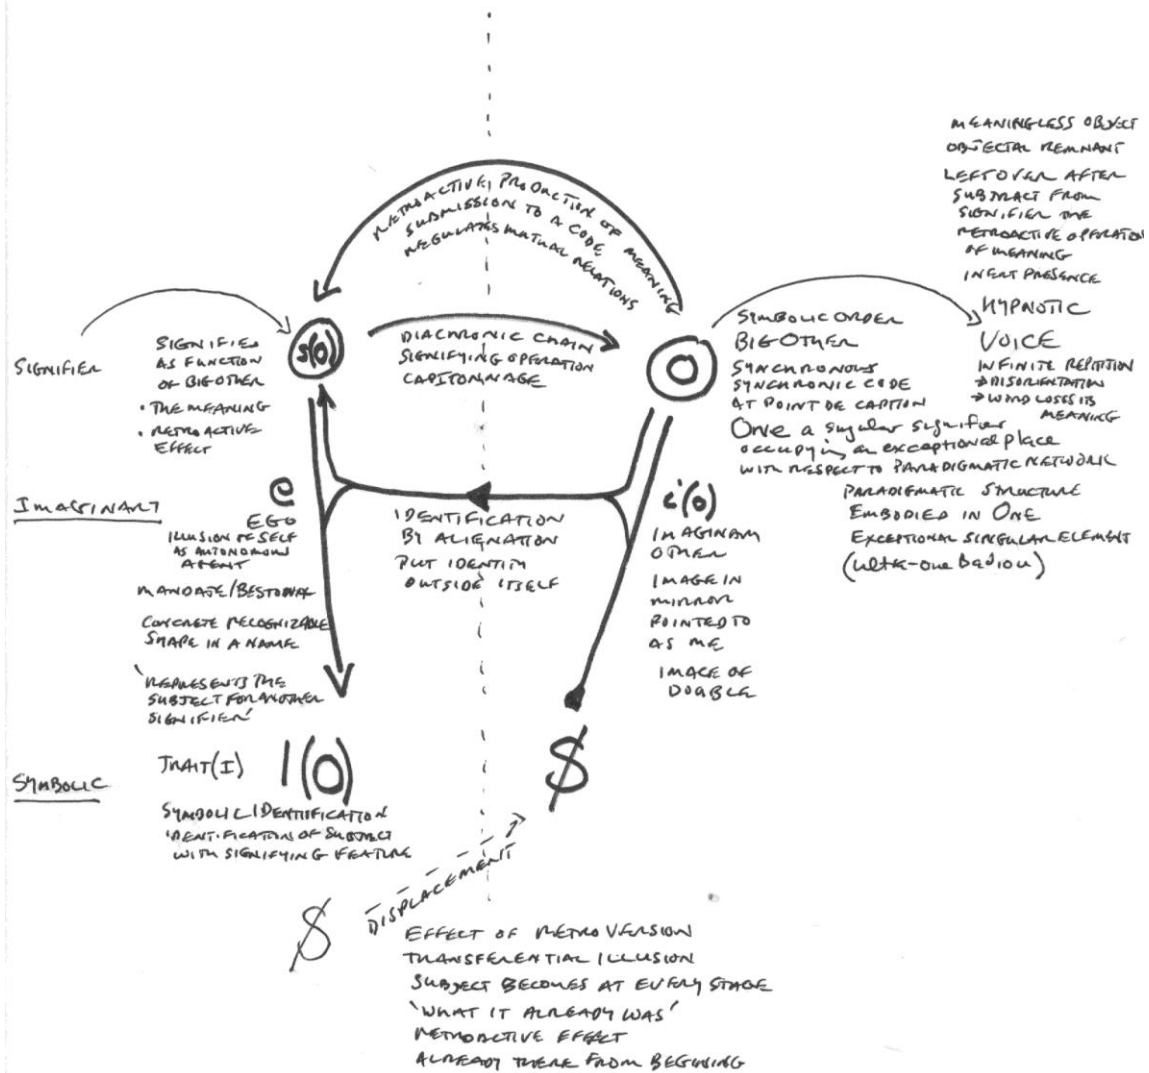 MEANINGLESS OBJECT
OBJECTAL REMNANT
LEFTOVER AFTER
SUBTRACT FROM
SIGNIFIER THE
RETROACTIVE OPERATION
OF MEANING
INERT PRESENCE
RETROACTIVE PRODUCTION OF MEANING
SUBMISSION TO A CODE
REGULATES MUTUAL RELATIONS
SIGNIFIER
SIGNIFIED
AS FUNCTION
OF BIG OTHER
• THE MEANING
• RETROACTIVE
EFFECT
s(O)
DIACHRONIC CHAIN
SIGNIFYING OPERATION
CAPITONNAGE
O
SYMBOLIC ORDER
BIG OTHER
SYNCHRONOUS
SYNCHRONIC CODE
AT POINT DE CAPTION
One a singular signifier
occupying an exceptional place
WITH RESPECT TO PARADIGMATIC NETWORK
PARADIGMATIC STRUCTURE
EMBODIED IN ONE
EXCEPTIONAL SINGULAR ELEMENT
(ultra-one Badiou)
HYPNOTIC
VOICE
INFINITE REPITITION
→ DISORIENTATION
→ WORD LOSES ITS
MEANING
IMAGINARY
e
EGO
ILLUSION OF SELF
AS AUTONOMOUS
AGENT
MANDATE/BESTOWAL
CONCRETE RECOGNIZABLE
SHAPE IN A NAME
'REPRESENTS THE
SUBJECT FOR ANOTHER
SIGNIFIER'
IDENTIFICATION
BY ALIENATION
PUT IDENTITY
OUTSIDE ITSELF
i'(O)
IMAGINARY
OTHER
IMAGE IN
MIRROR
POINTED TO
AS ME
IMAGE OF
DOUBLE
SYMBOLIC
TRAIT (I) I(O)
SYMBOLIC IDENTIFICATION
IDENTIFICATION OF SUBJECT
WITH SIGNIFYING FEATURE
$
$
DISPLACEMENT
EFFECT OF RETROVERSION
TRANSFERENTIAL ILLUSION
SUBJECT BECOMES AT EVERY STAGE
'WHAT IT ALREADY WAS'
RETROACTIVE EFFECT
ALREADY THERE FROM BEGINING